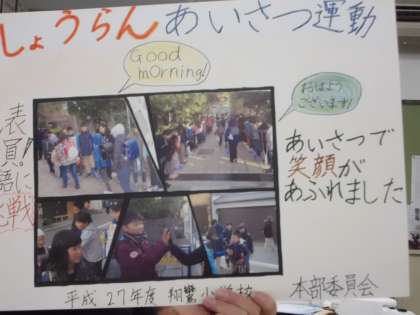 しょうらんあいさつ運動
Good
morning!
おはよう
ございます!
表
員!
語に
挑戦
あいさつで
笑顔が
あふれました
平成27年度 翔鸞小学校
本部委員会